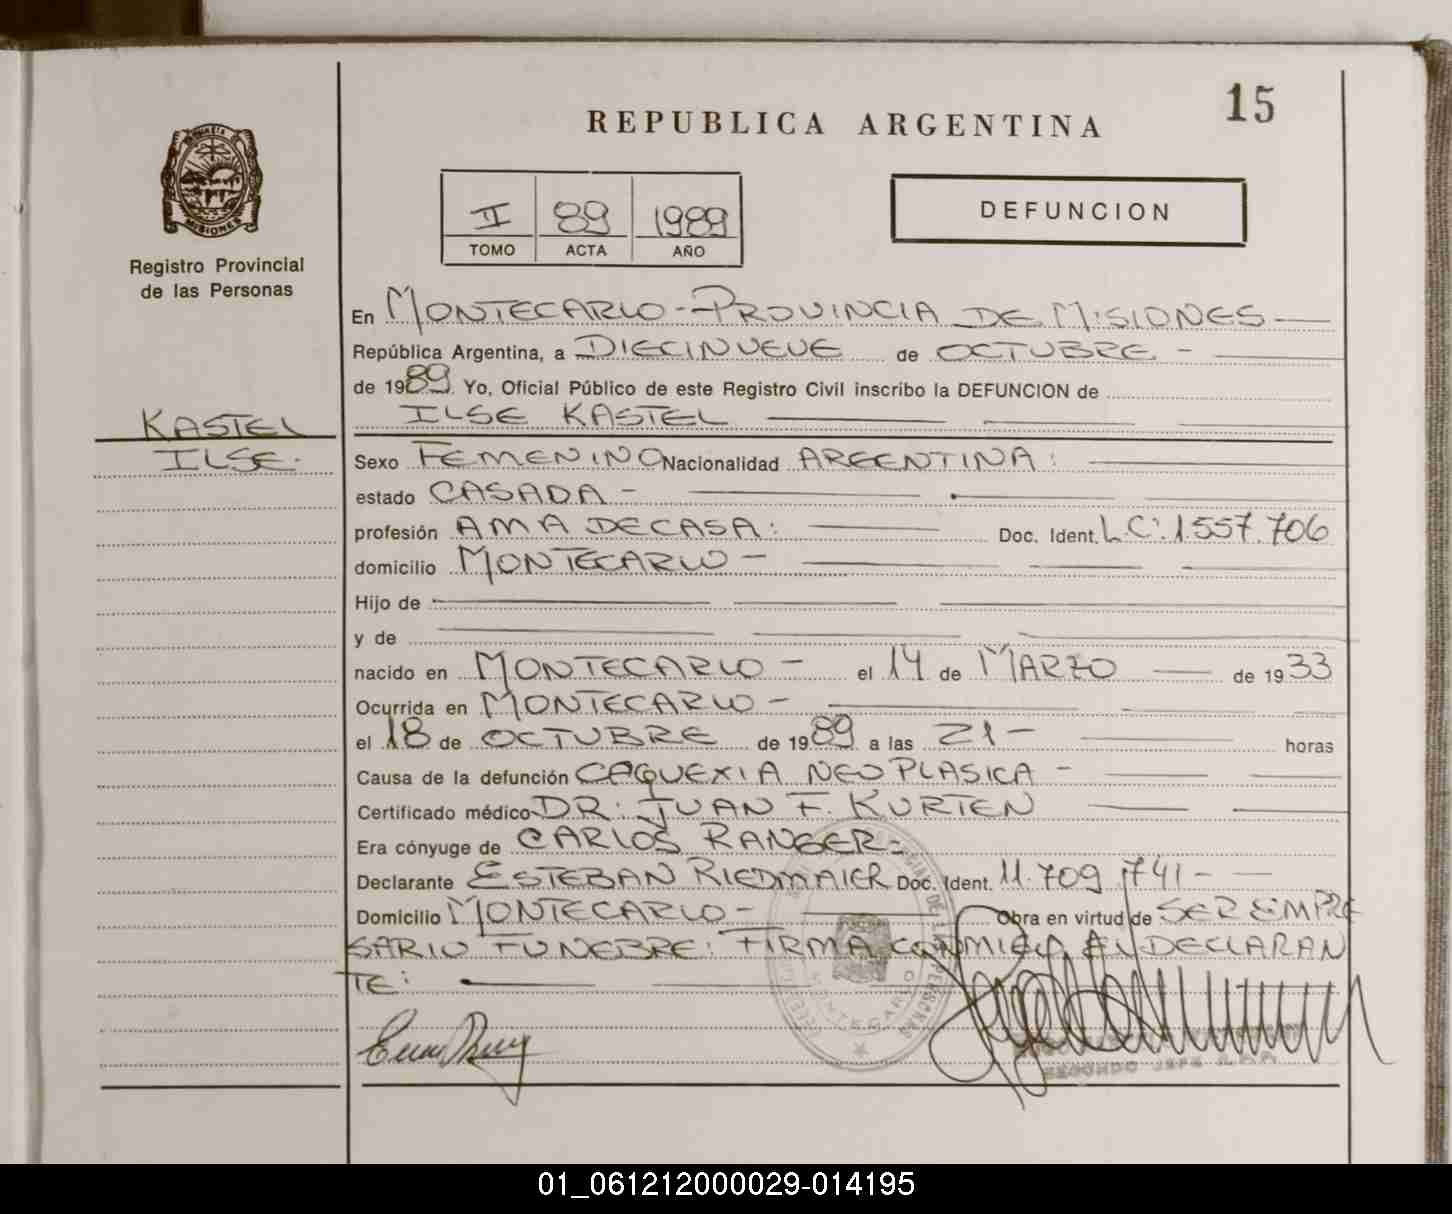 15
REPUBLICA ARGENTINA
II 89 1989
TOMO ACTA AÑO
DEFUNCION
MISIONES
Registro Provincial
de las Personas
KASTEL
ILSE.
En MONTECARLO - PROVINCIA DE MISIONES
República Argentina, a DIECINUEVE de OCTUBRE -
de 1989. Yo, Oficial Público de este Registro Civil inscribo la DEFUNCION de
ILSE KASTEL
Sexo FEMENINO Nacionalidad ARGENTINA:
estado CASADA -
profesión AMA DE CASA: Doc. Ident. L.C: 1.557.706
domicilio MONTECARLO -
Hijo de
y de
nacido en MONTECARLO - el 14 de MARZO de 1933
Ocurrida en MONTECARLO -
el 18 de OCTUBRE de 1989 a las 21 - horas
Causa de la defunción CAQUEXIA NEOPLASICA -
Certificado médico DR: JUAN F. KURTEN
Era cónyuge de CARLOS RANGER =
Declarante ESTEBAN RIEDMAIER Doc. Ident. 11.709.741 -
Domicilio MONTECARLO - Obra en virtud de SER EMPRE
SARIO FUNEBRE: FIRMA CONMIGO EL DECLARAN
TE:
MONTECARLO
SEGUNDO JEFE
01_061212000029-014195